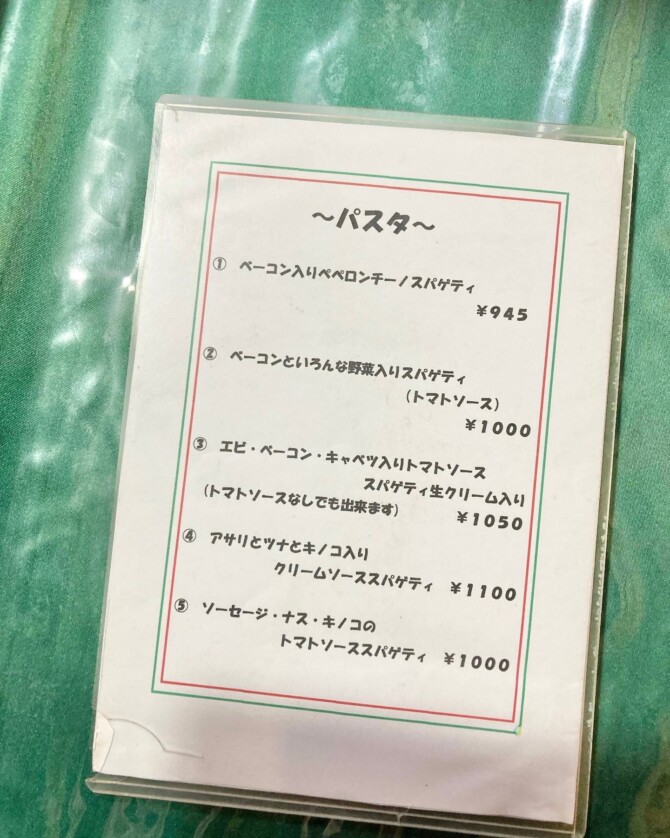 ～パスタ～
① ベーコン入りペペロンチーノスパゲティ
¥945
② ベーコンといろんな野菜入りスパゲティ
(トマトソース)
¥1000
③ エビ・ベーコン・キャベツ入りトマトソース
スパゲティ生クリーム入り
(トマトソースなしでも出来ます) ¥1050
④ アサリとツナとキノコ入り
クリームソーススパゲティ ¥1100
⑤ ソーセージ・ナス・キノコの
トマトソーススパゲティ ¥1000